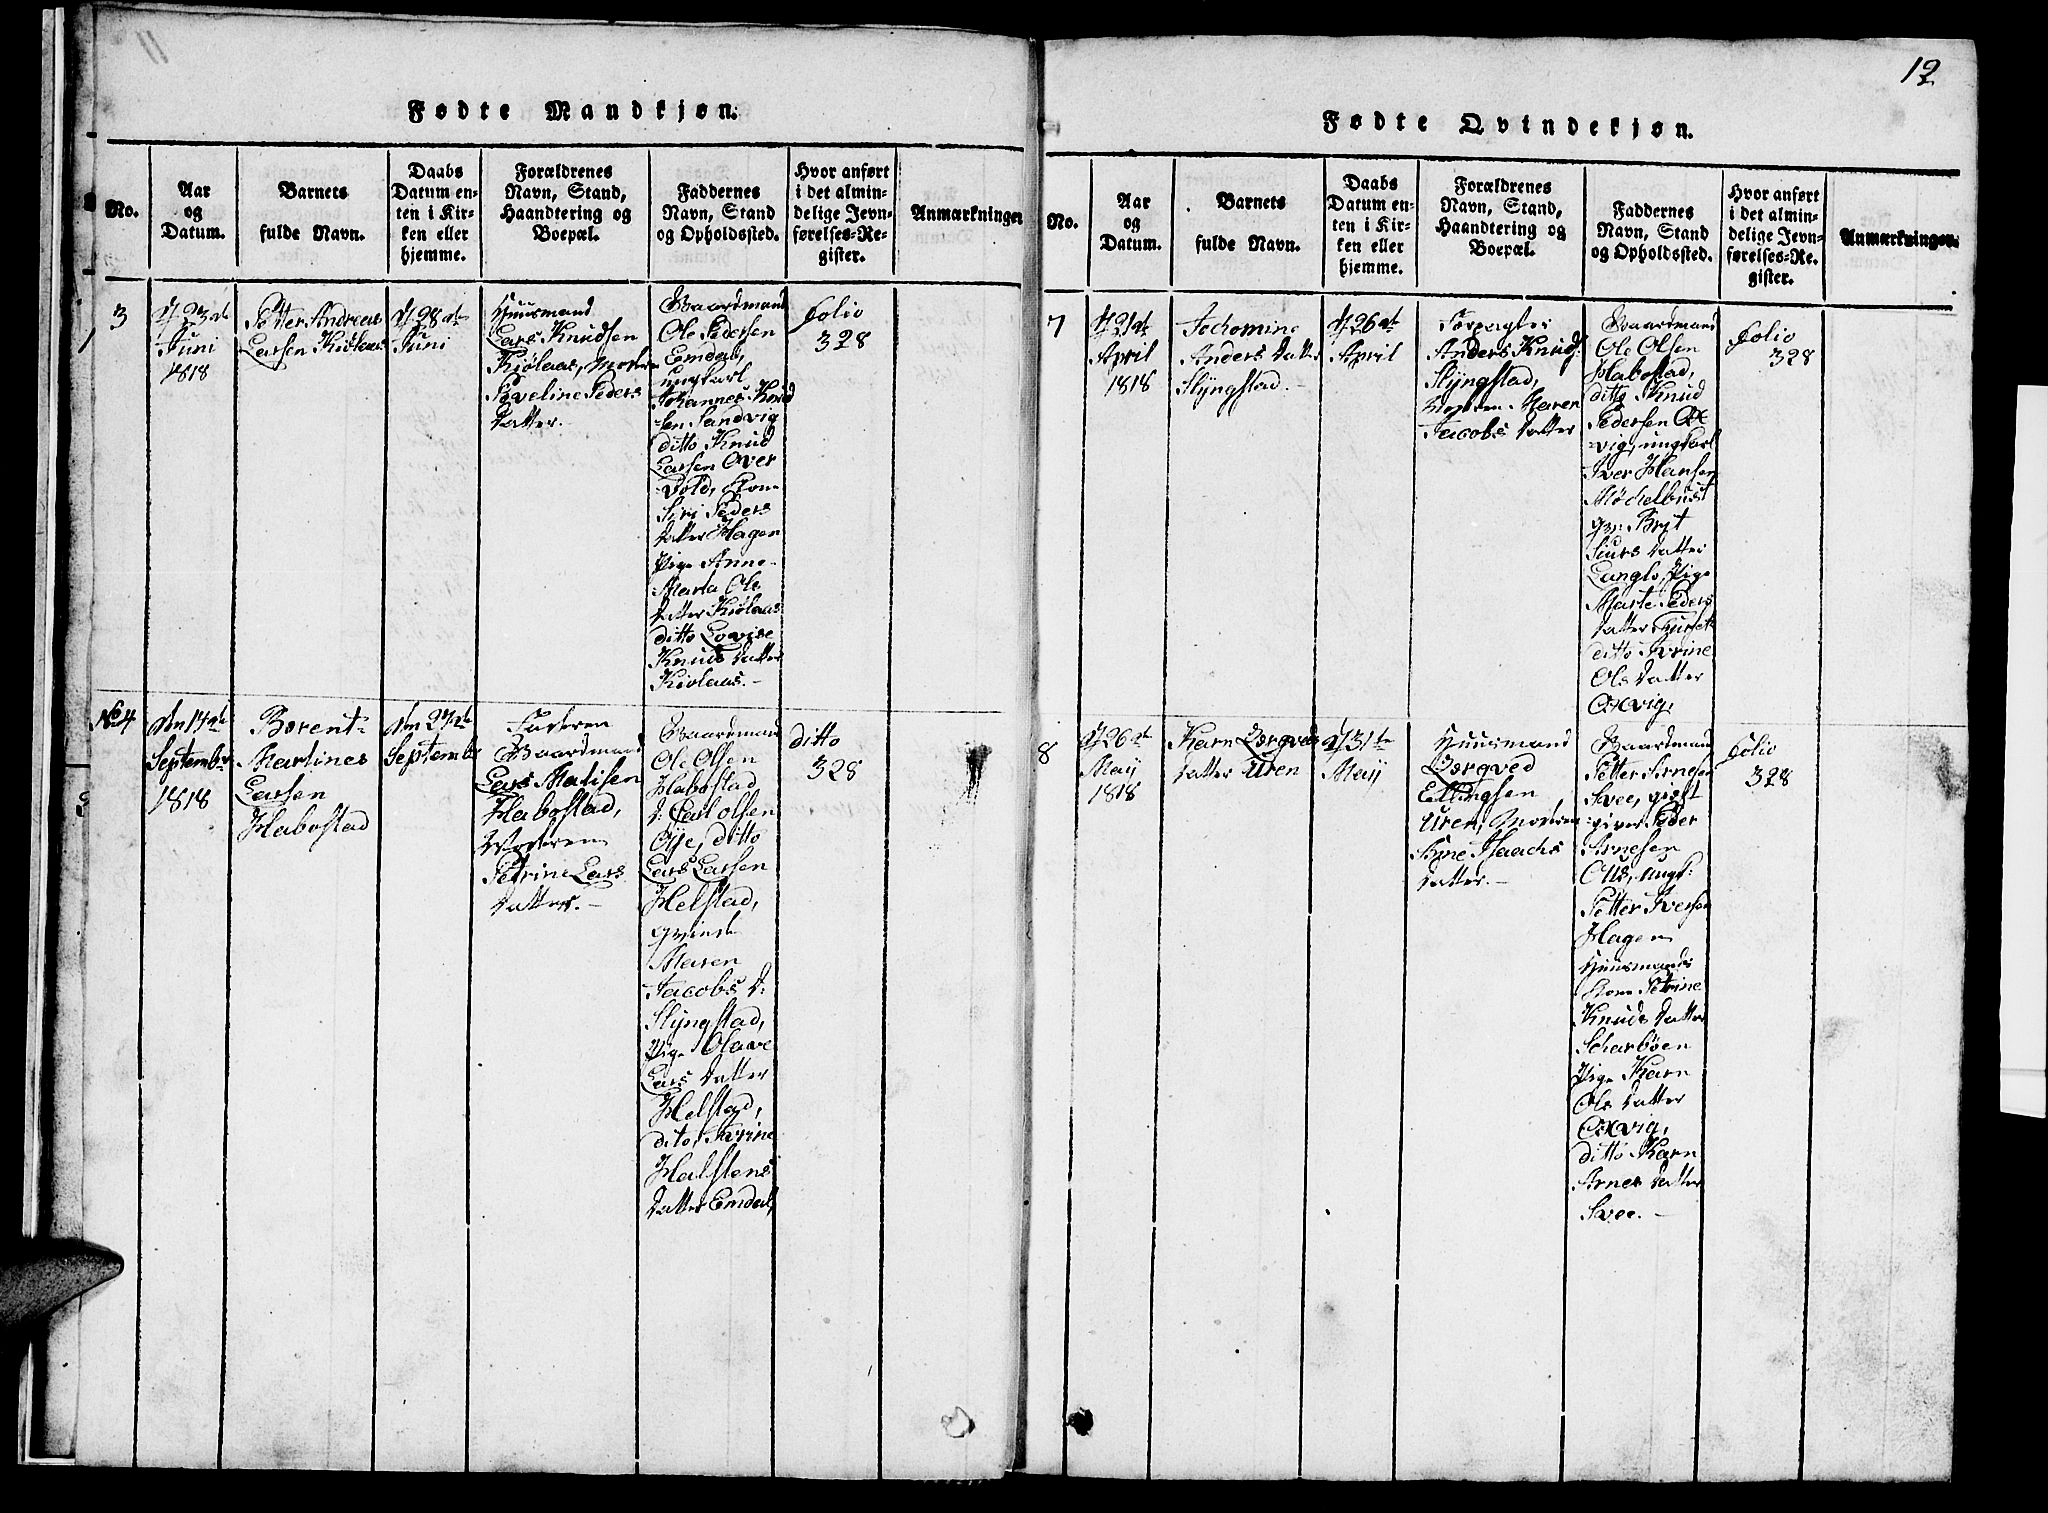 11
Fødte Mandkjøn.
No.
Aar
og
Datum.
Barnets
fulde Navn.
Daabs
Datum en-
ten i Kir-
ken eller
hjemme.
Forældrenes
Navn, Stand,
Haandtering og
Boepæl.
Faddernes
Navn, Stand
og Opholdssted.
Hvor anført
i det almin-
delige Jevn-
førelses-Re-
gister.
Anmærkninger
3
23de
Juni
1818
Petter Andreas
Larsen Kiölaas
28de
Juni
Huusmand
Lars Knudsen
Kiölaas, Moder
Poveline Peders
Datter.
Gaardmand
Ole Pedersen
Emdal,
ungkarl
Johannes Knud
-sen Sandvig
ditto Knud
Larsen Over
-vold, Kone
Siri Peders
Datter Hagen
Pige Anne-
Marta Ole
Datter Kiölaas
ditto Lovise
Knuds Datter
Kiölaas.-
Folio
328
No 4
den 17de
September
1818
Berent-
Martines
Larsen
Habostad
den 27de
Septemb
Faderen
Gaardmand
Lars Madisen
Habostad,
Moderen
Petrine Lars
Datter.-
Gaardmand
Ole Olsen
Habostad
d: Carl olsen
Oye, ditto
Lars Larsen
Helstad,
Qvinde
Maren
Jacobs D:
Slÿngstad,
Pige Olave
Lars Datter
Helstad,
dito, Ivrine
Halstens
Datter Emdal,
ditto
328
12
Fødte Qvindekjøn.
No.
Aar
og
Datum.
Barnets
fulde Navn.
Daabs
Datum en-
ten i Kir-
ken eller
hjemme.
Forældrenes
Navn, Stand,
Haandtering og
Boepæl.
Faddernes
Navn, Stand
og Opholdssted.
Hvor anført
i det almin-
delige Jevn-
førelses-Re-
gister.
Anmærkninger.
7
21de
April
1818
Jochomine
Anders Datter
Slÿngstad.-
26de
April
Anders Knuds:
Slÿngstad,
Moderen Maren
Jacobs Datter
Gaardmand
Ole Olsen
Habostad,
ditto Knud
Pedersen Ox
vig, ungkarl
Iver Hansen
Möchelbust
Siurs Datter
Langlo, Pige
Marte Peders
Datter
ditto Ivrine
Ols Datter
Oxvig,
Folio
328
8
26de
May
1818
Karn Bergves
Datter Uren
31te
May
Huusmand
Bergved
Ellingsen
Uren, Moderen
Syne Isaachs
Datter.-
Gaardmand
Petter Arnesen
Svee, giest
-giver Peder
Arnesen
Petter Iversen
Hagen
Huusmands
Kone Petrine
Knuds Datter
Scharböen
Pige Karn
Ols Datter
Oxvig,
ditto Karn
Arnes Datter
Svee.-
Folio
328